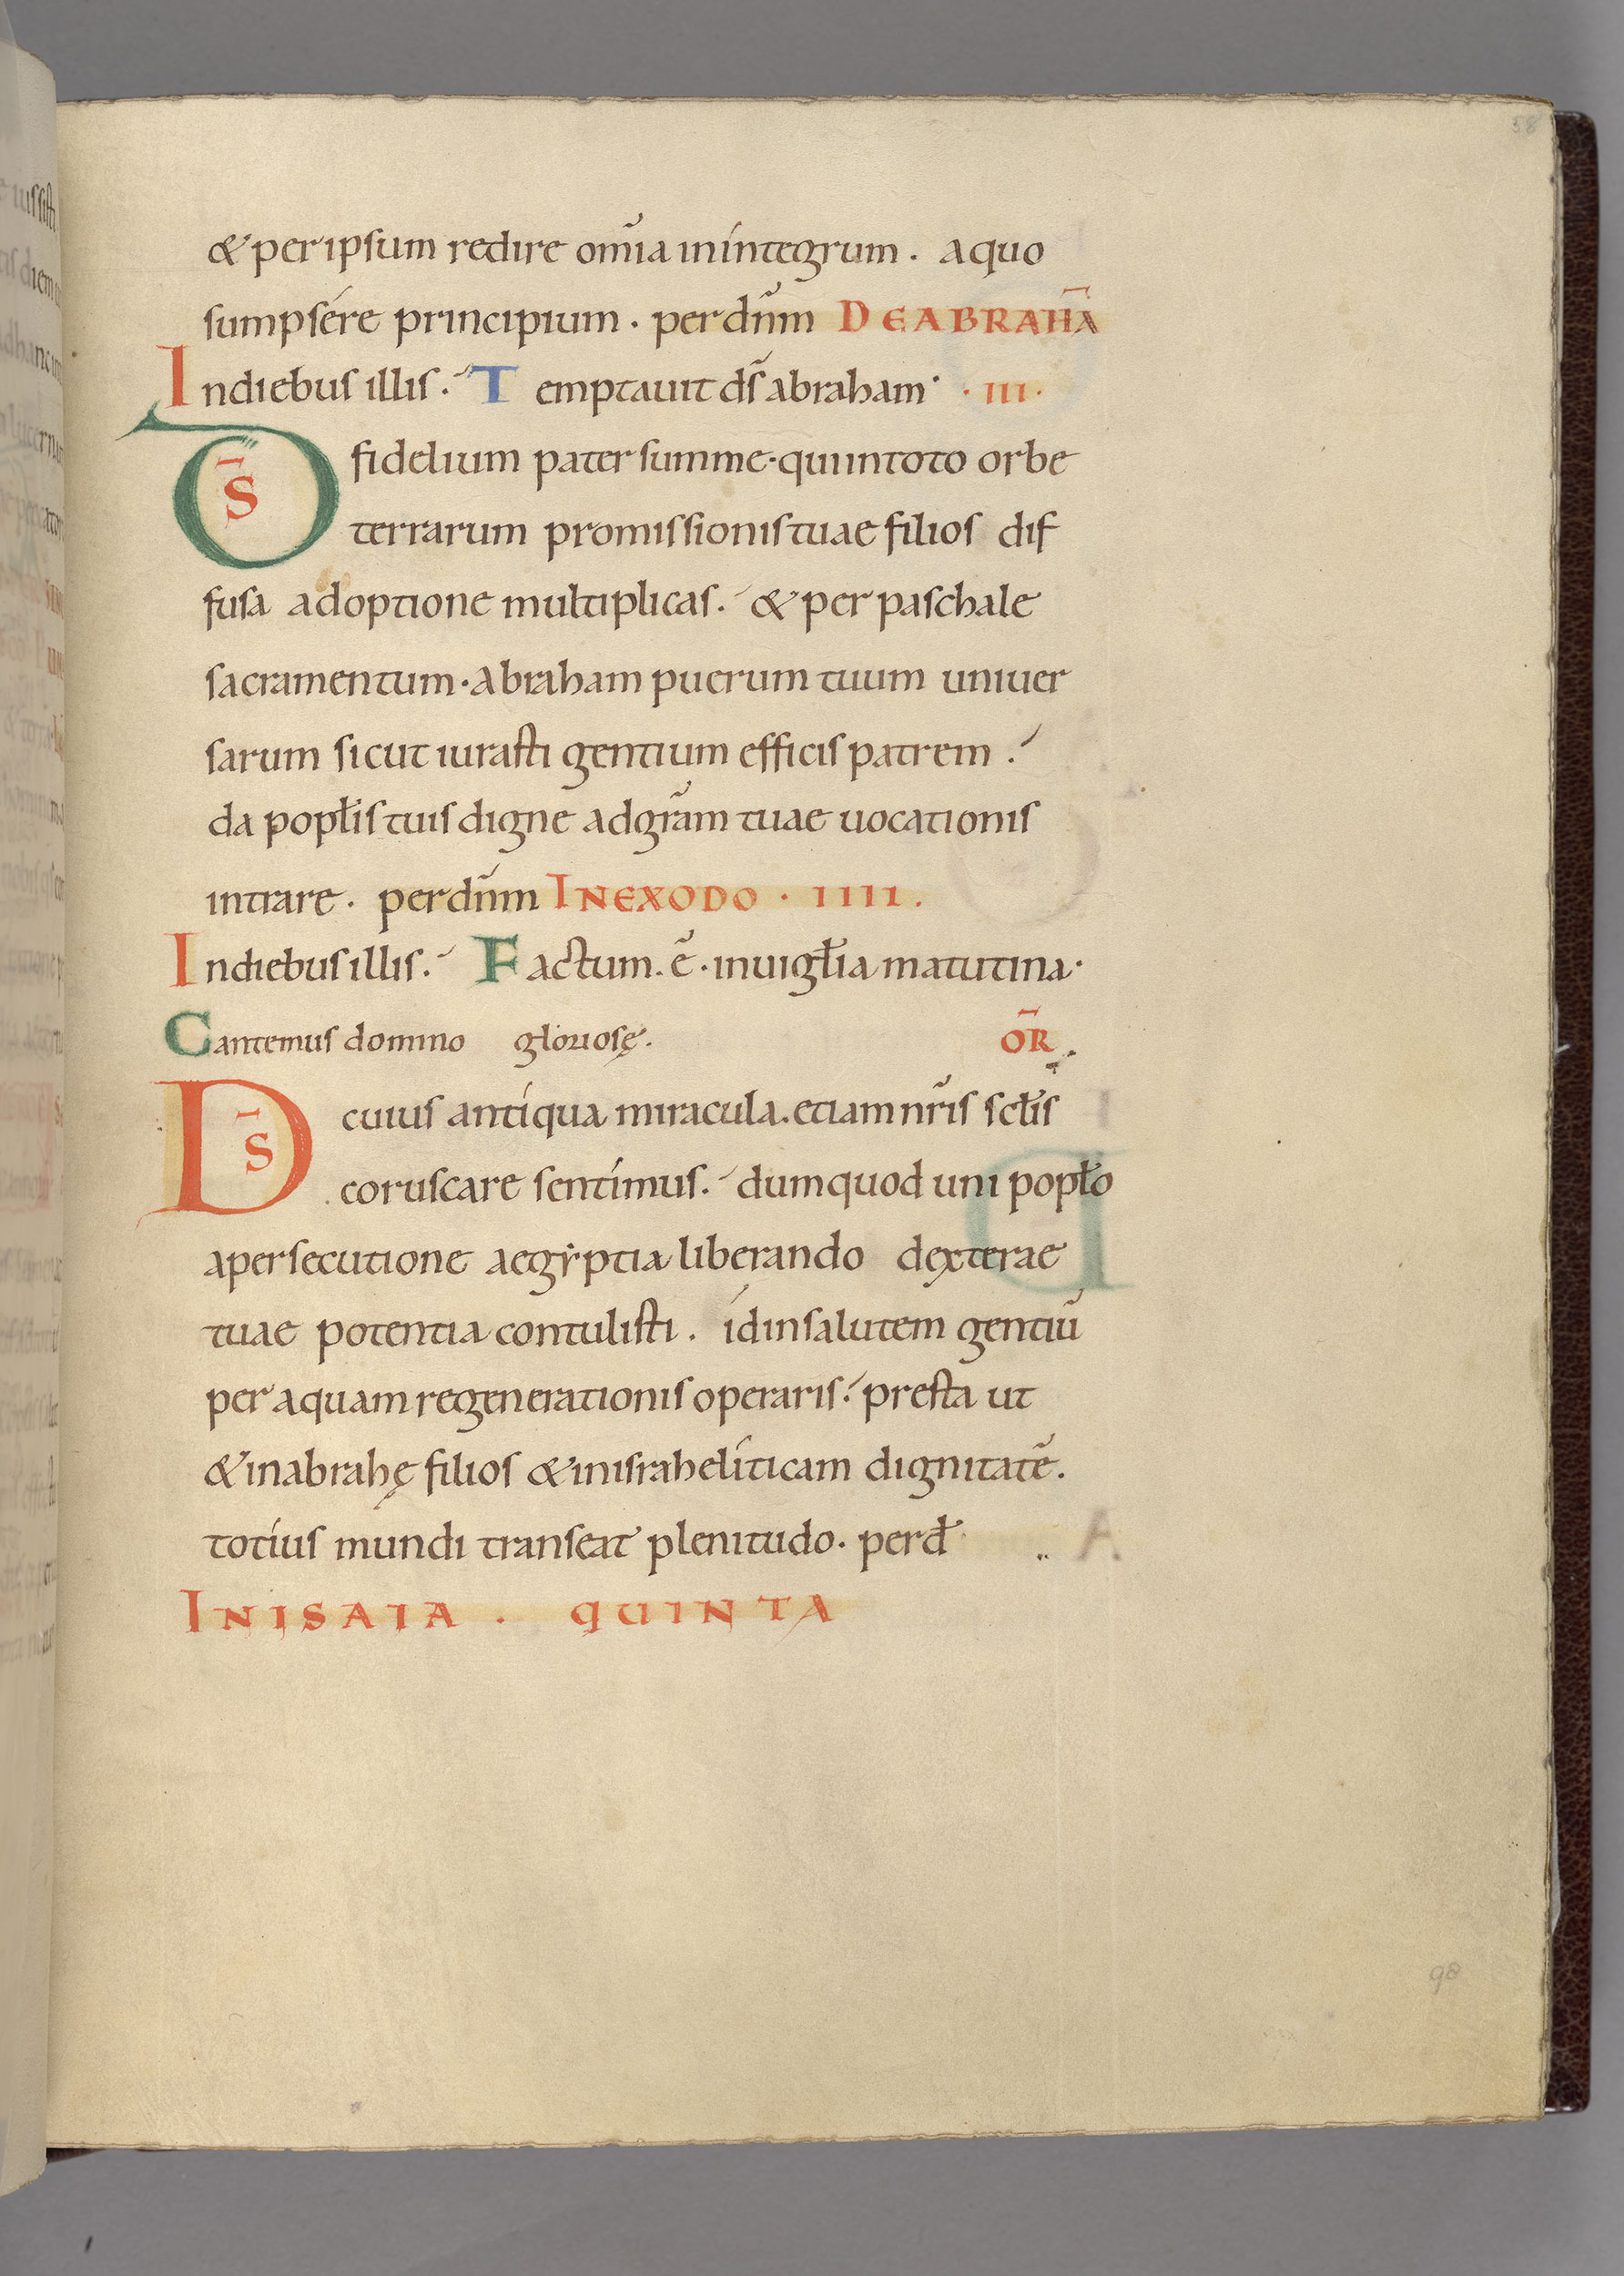 58
& per ipsum redire om̄ia in íntegrum . a quo
sumpsére principium . per dn̄m DE ABRAHĀ
In diebus illis . Temptauit ds̄ abraham · III ·
Ds̄ fidelium pater summe · qui in toto orbe
terrarum promissionis tuae filios dif
fusa adoptione multiplicas . & per paschale
sacramentum · abraham puerum tuum uniuer
sarum sicut iurasti gentium efficis patrem .
da popłis tuis digne ad grām tuae uocationis
intrare . per dn̄m IN EXODO · IIII .
In diebus illis . Factum . ē . in uigłia matutina ·
Cantemus domino gloriosę . OR̄
Ds̄ cuius antíqua miracula . etiam nr̄is scłis
coruscare sentímus . dum quod uni popło
a persecutione aegẏptia liberando dexterae
tuae potentia contulisti . íd in salutem gentiū
per aquam regenerationis operaris . presta ut
& in abrahę filios & in israhelíticam dignitatē .
totíus mundi transeat plenitudo . per đ
IN ISAIA . QUINTA
98